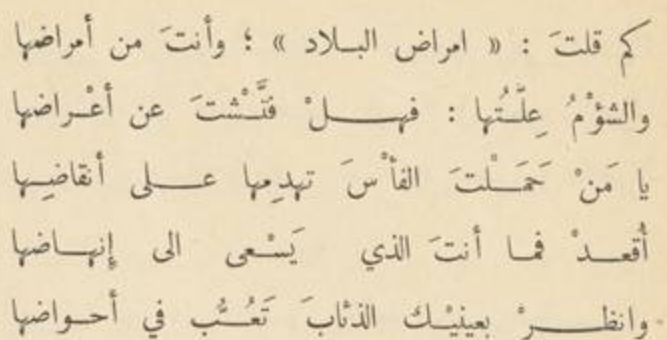 كم قلتَ : « امراض البلاد » ؛ وأنتَ من أمراضها
والشؤْمُ عِلَّتُها : فهلْ فتَّشتَ عن أعْراضها
يا مَنْ حَمَلْتَ الفأْسَ تهدِمها على أنقاضِها
أُقعدْ فما أنتَ الذي يَسْعى الى إنهاضها
وانظرْ بعينيْك الذئابَ تَعُبُّ في أحواضها